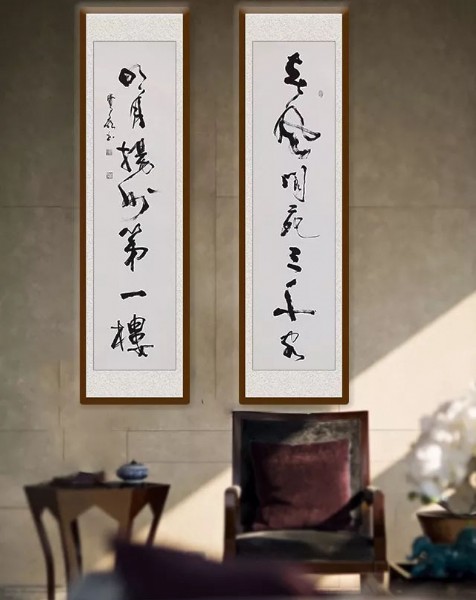 春風閬苑三千客
明月揚州第一樓